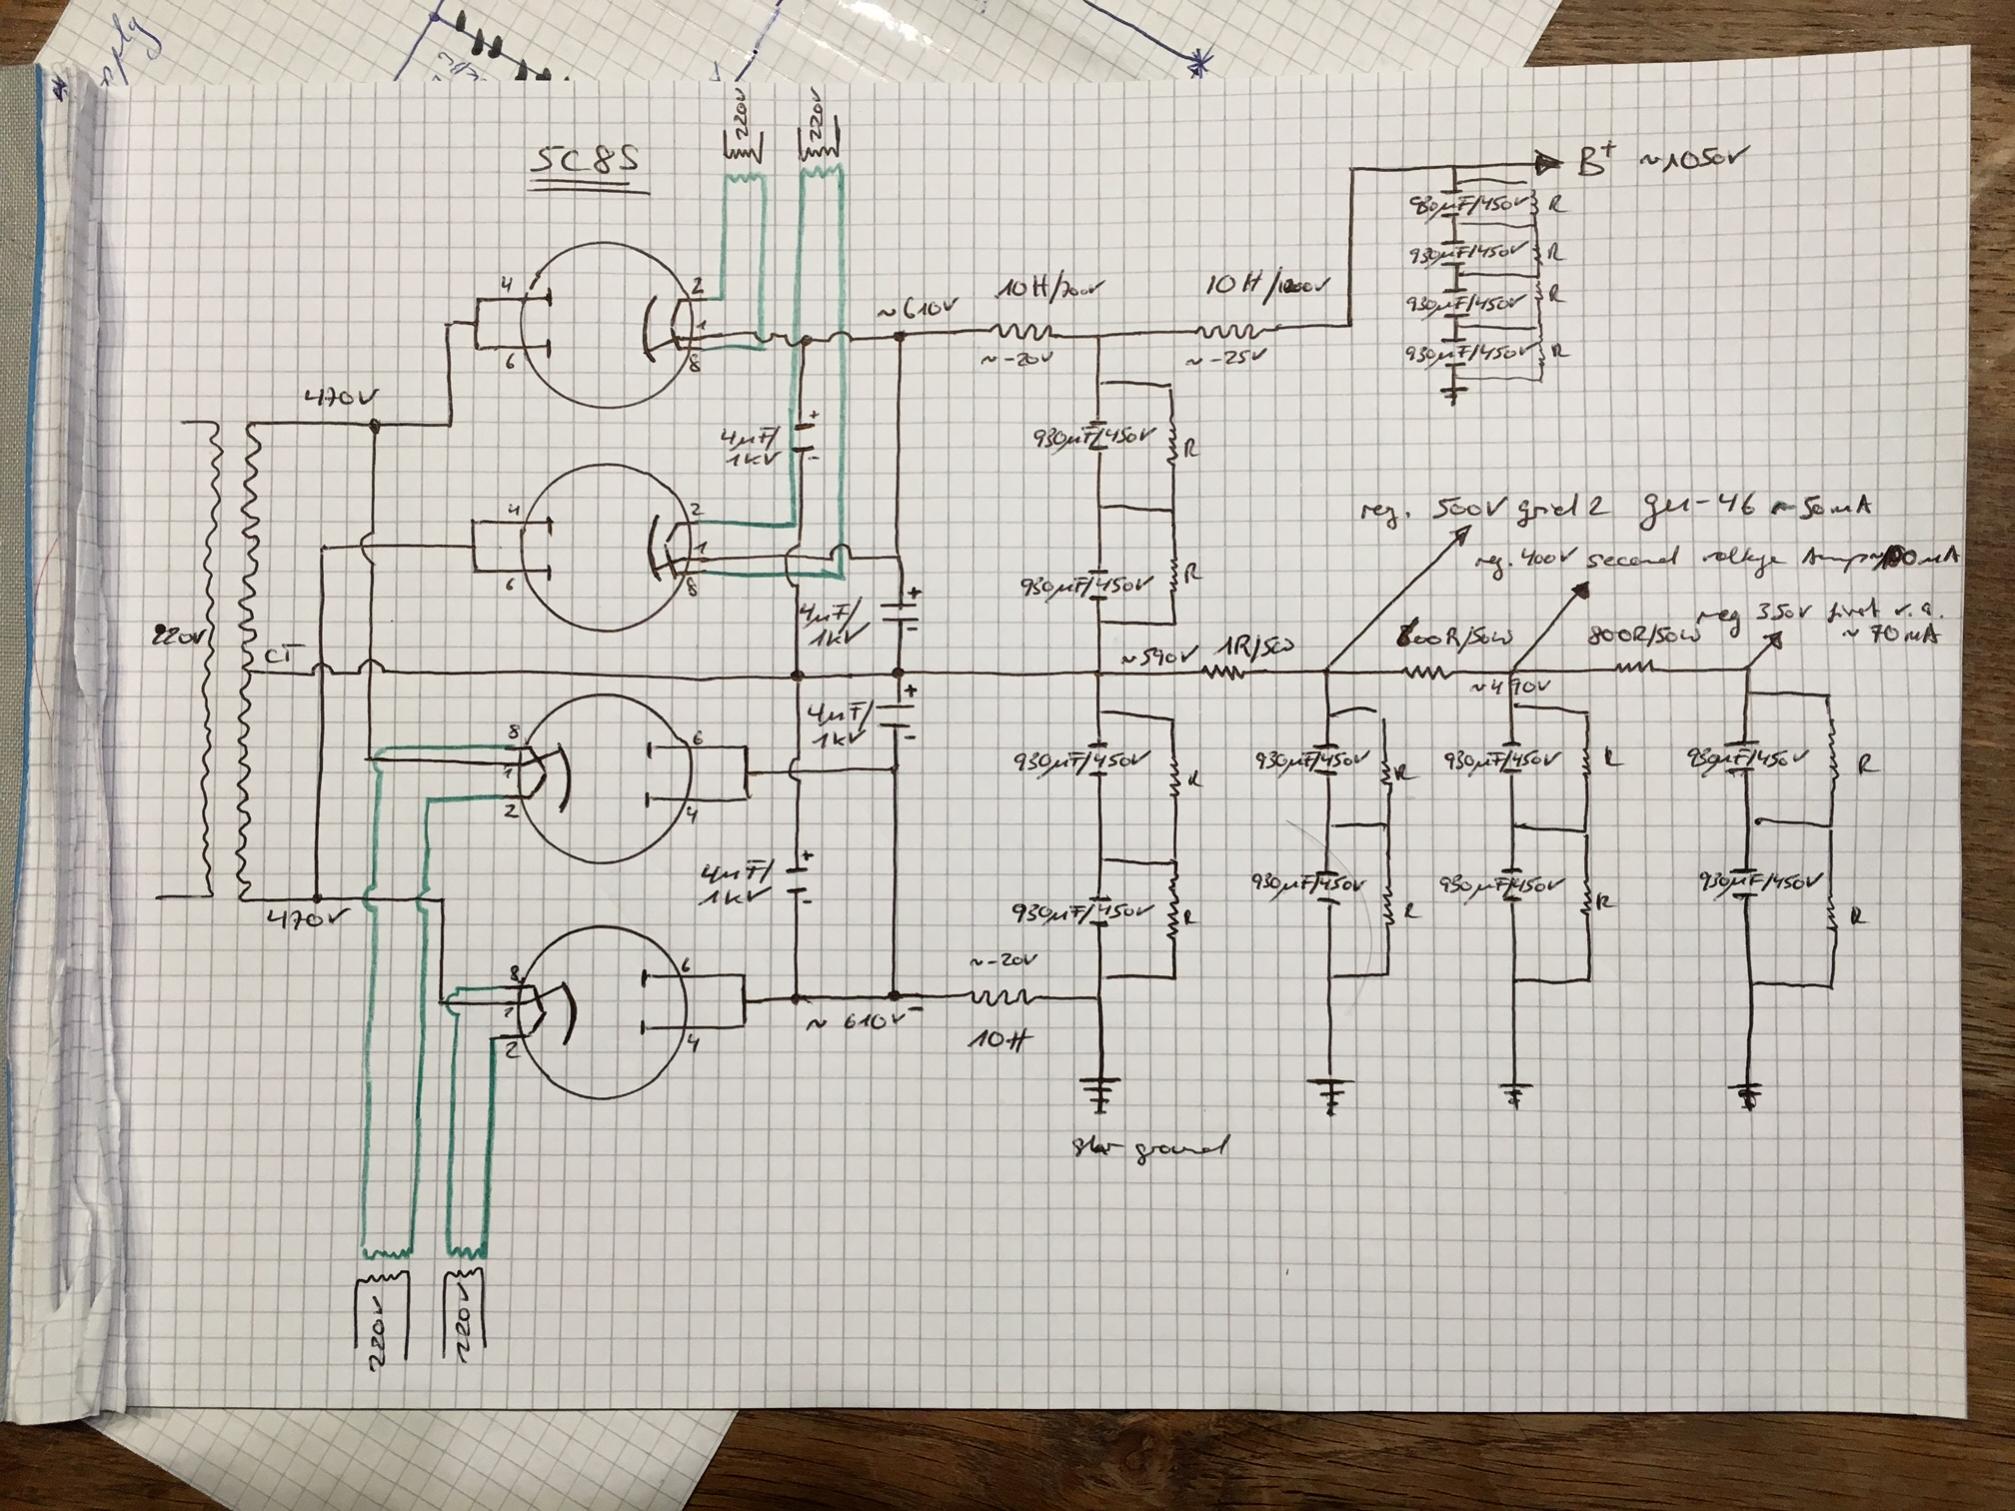 5C8S
220V
220V
B+ ~1050V
930µF/450V R
930µF/450V R
930µF/450V R
930µF/450V R
4
6
2
1
8
~610V
10H/700V
~-20V
10H/1200V
~-25V
470V
4µF/
1kV
+
-
930µF/450V R
930µF/450V R
4
6
2
1
8
4µF/
1kV
+
-
reg. 500V grid 2 gu-46 ~50mA
reg. 400V second voltage Amp ~100mA
reg 350V first v.a.
~70mA
220V
CT
~590V
1R/50
800R/50W
800R/50W
~490V
8
1
2
6
4
4µF/
1kV
+
-
930µF/450V R
930µF/450V R
930µF/450V R
930µF/450V R
4µF/
1kV
+
-
930µF/450V R
930µF/450V R
930µF/450V R
930µF/450V R
470V
8
1
2
6
4
~610V-
~-20V
10H
star ground
220V
220V